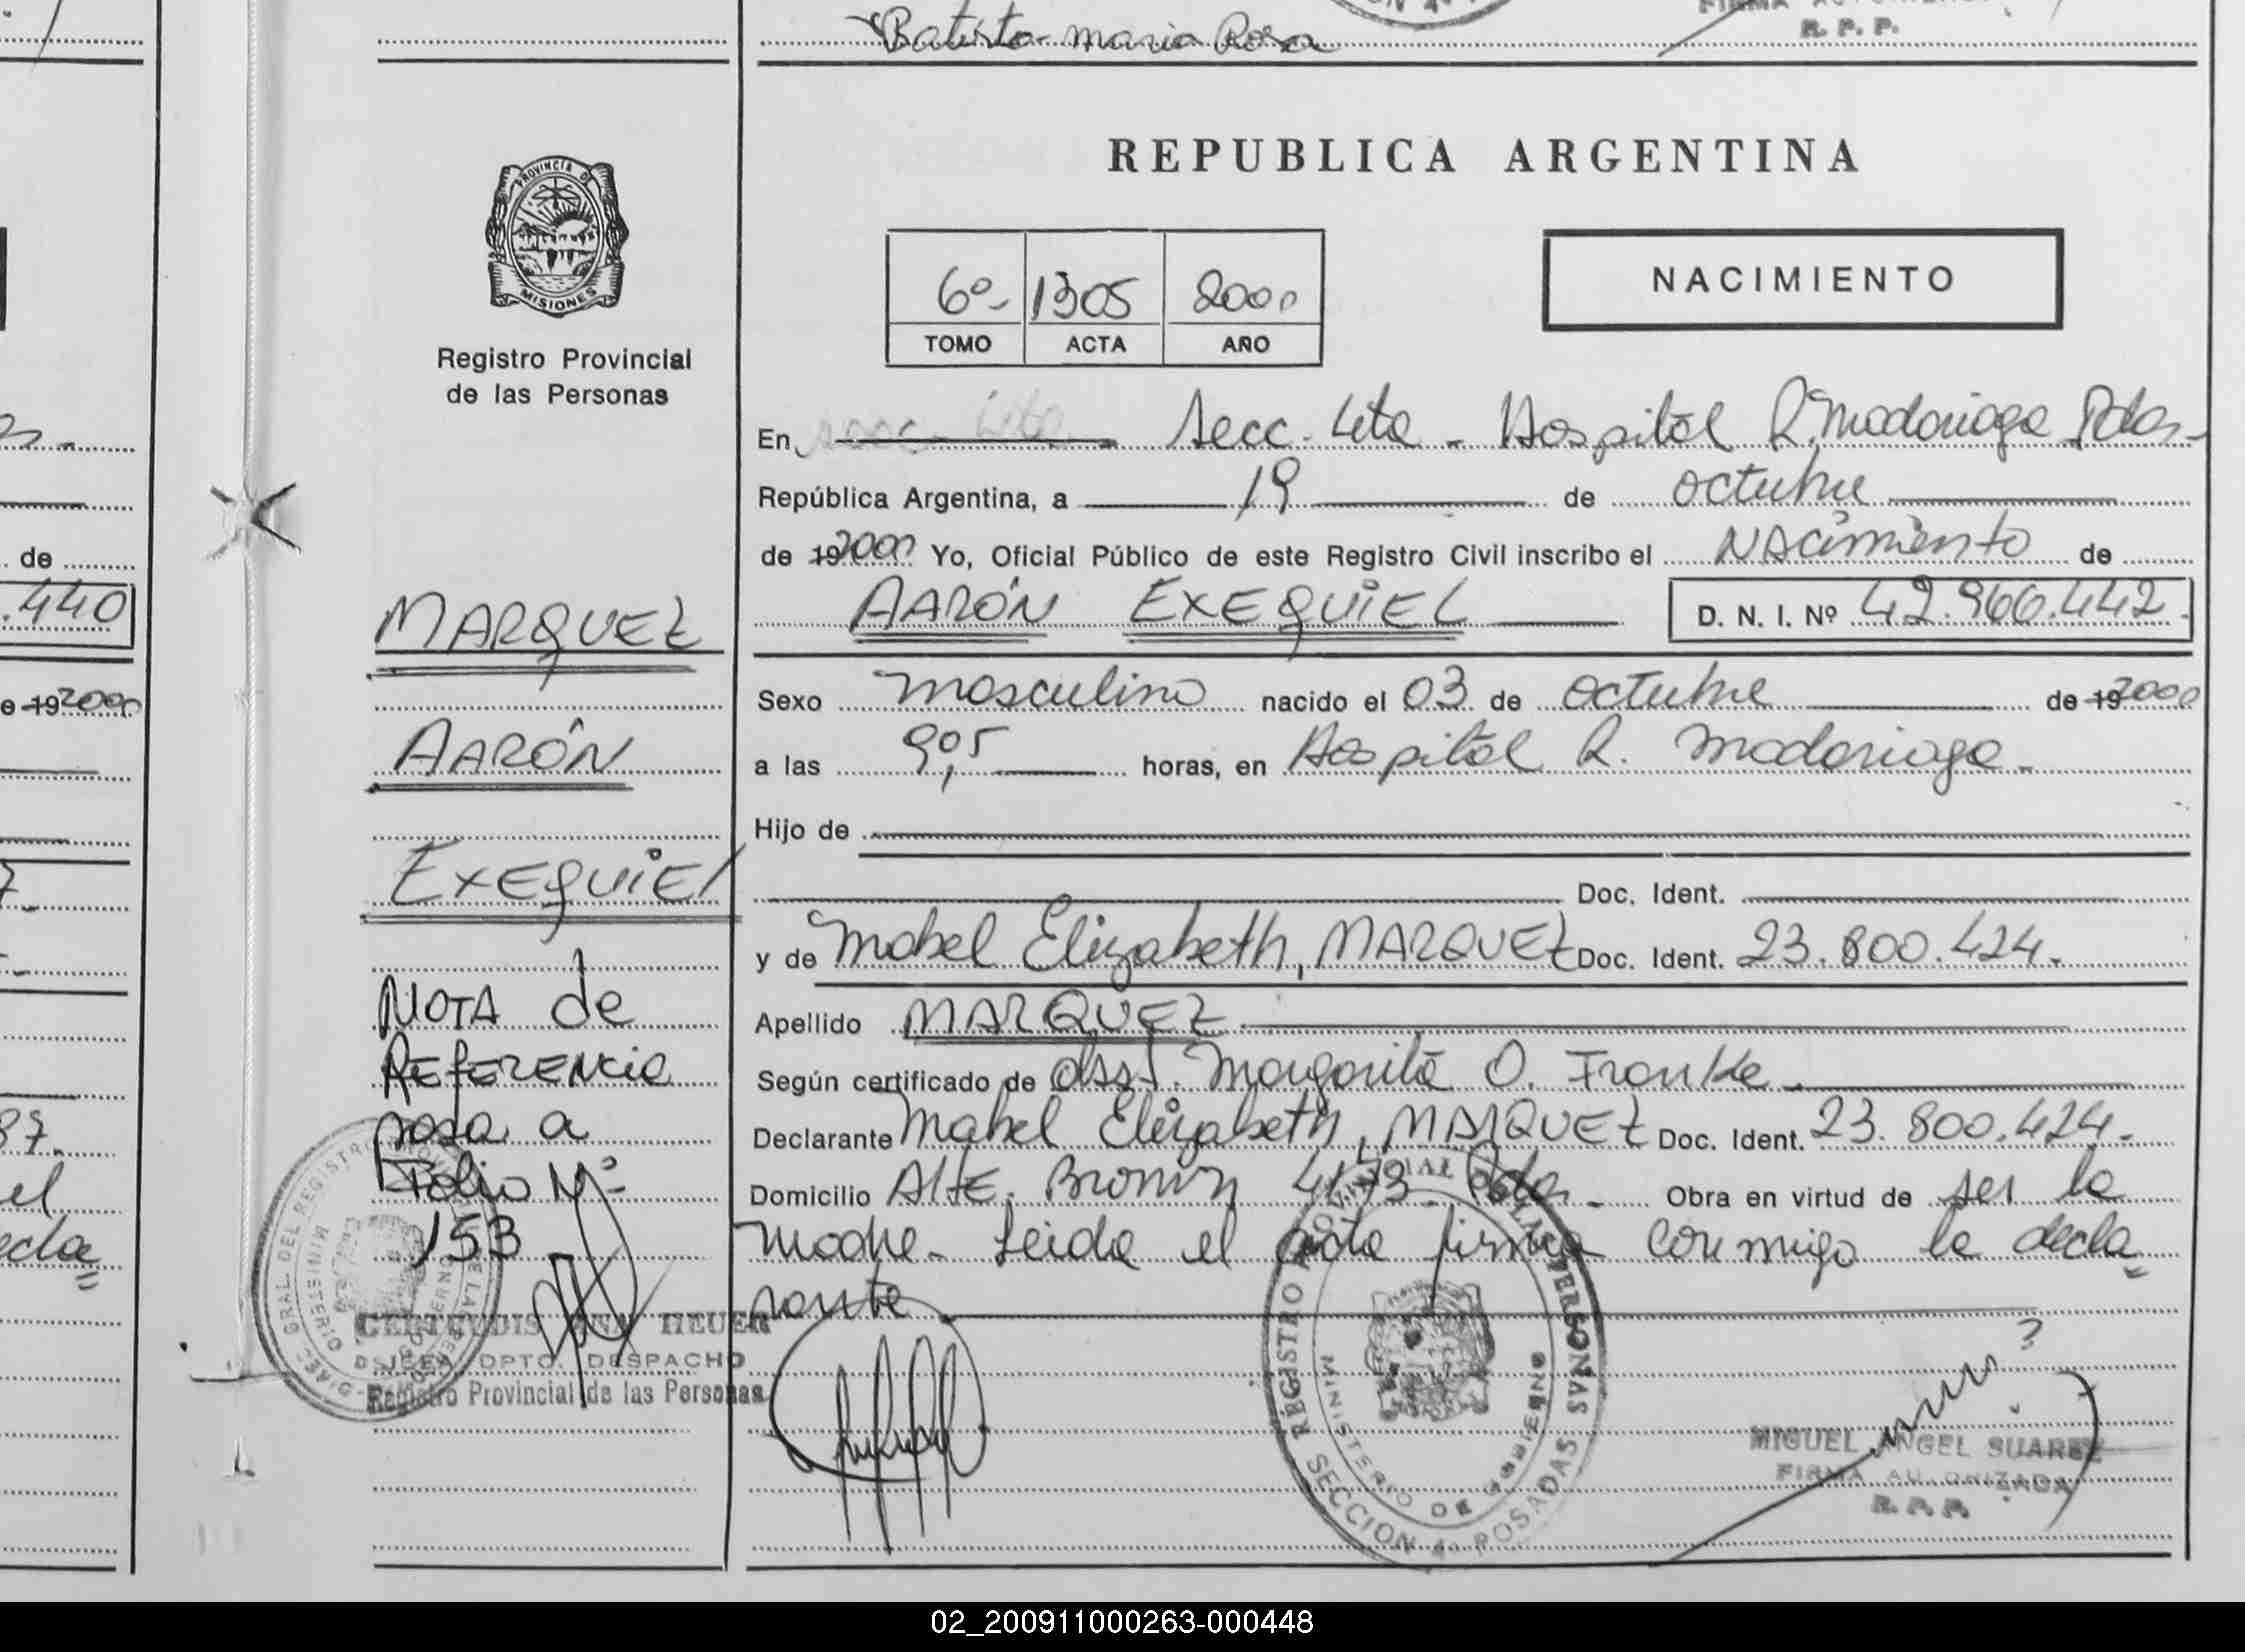 Batista maria Rosa
R. P. P.
REPUBLICA ARGENTINA
PROVINCIA D
MISIONES
Registro Provincial
de las Personas
6º 1305 2000
TOMO ACTA AÑO
NACIMIENTO
En Secc. 4ta - Hospital R. Madariaga Pdas-
República Argentina, a 19 de octubre
de 19 2000 Yo, Oficial Público de este Registro Civil inscribo el NAcimiento de
AARÓN EXEQUIEL D. N. I. Nº 42.966.442.
Sexo masculino nacido el 03 de octubre de 19 2000
a las 9,05 horas, en Hospital R. Madariaga-
Hijo de
Doc. Ident.
y de Mabel Elizabeth, MARQUEZ Doc. Ident. 23.800.424.
Apellido MARQUEZ
Según certificado de obst. Margarita O. Franke.
Declarante Mabel Elizabeth, MARQUEZ Doc. Ident. 23.800.424.
Domicilio Alte. Brown 4173 Pdas. Obra en virtud de ser la
madre- Leida el acta firma conmigo la decla
rante
MARQUEZ
AARÓN
EXEQUIEL
NOTA de
REFERENCIA
pasa a
Folio Nº
153
DPTO. DESPACHO
Registro Provincial de las Personas
REGISTRO PROVINCIAL DE LAS PERSONAS
MINISTERIO DE GOBIERNO
SECCION 4ª POSADAS
MIGUEL ANGEL SUAREZ
FIRMA AUTORIZADA
R. P. P.
de
.440
e 19 2000
87.
el
ecla
02_200911000263-000448